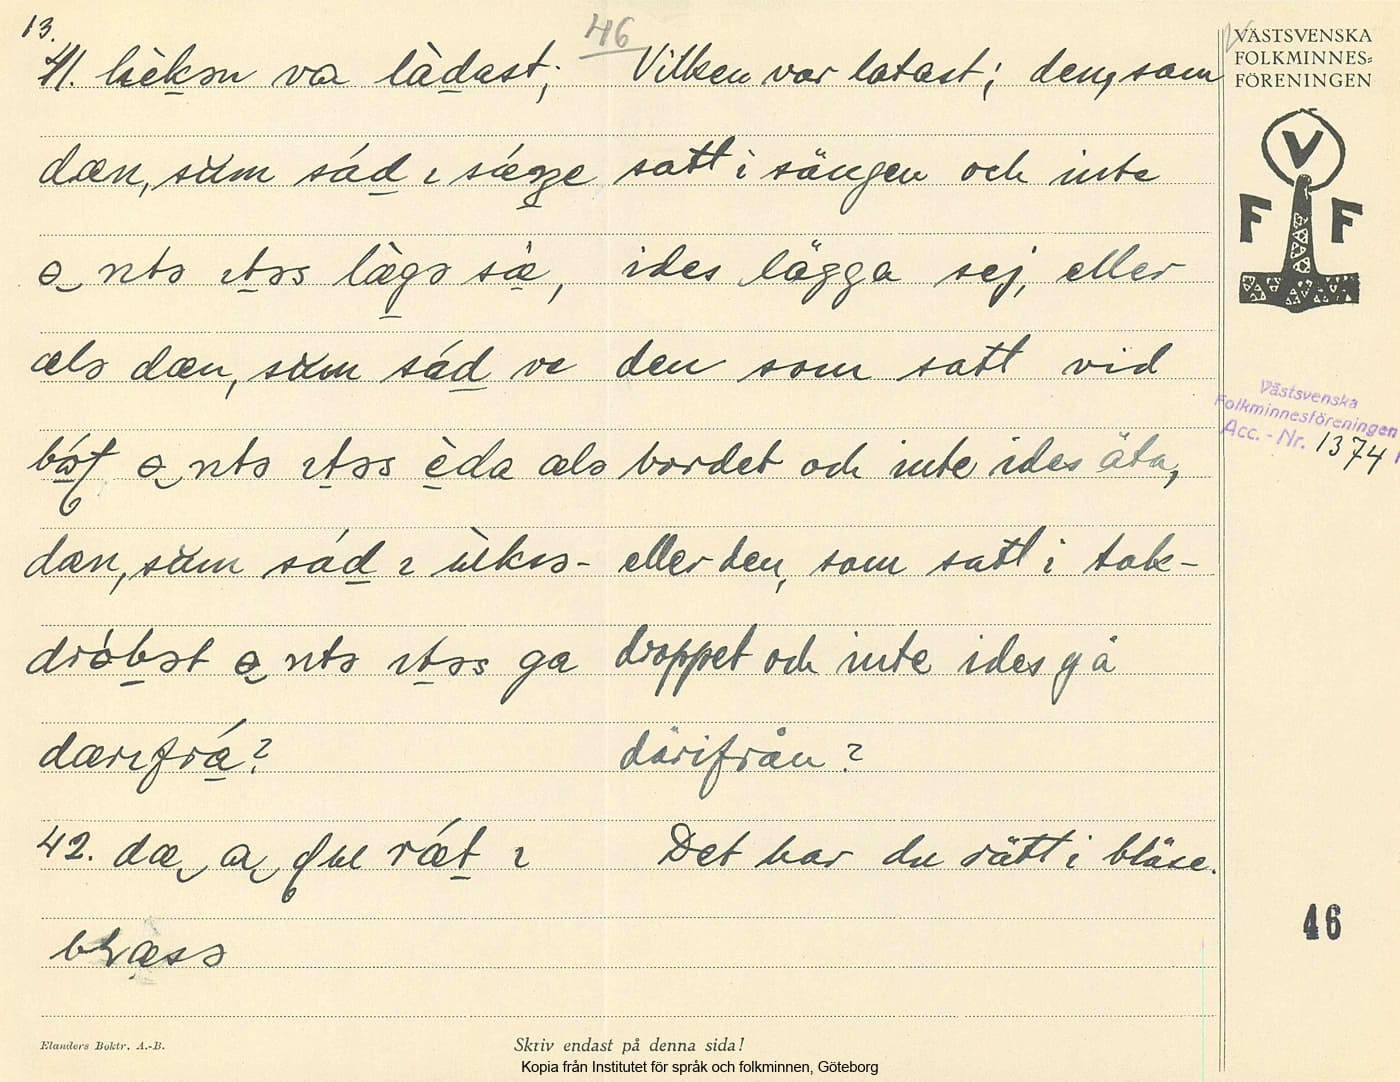 13.
46
41. hìkən va làdast; Vilken var latast; den, som
dæn, sum sád ı sæŋe satt i sängen och inte
ə ntə ıtəs lægə sæ, ides lägga sej, eller
ælə dæn, sum sád ve den som satt vid
ə ntə ıtəs èda ælə bordet och inte ides äta,
dæn, sum sád ı ùkəs- eller den, som satt i tak-
dróbət ə ntə ıtəs ga droppet och inte ides gå
dærıfrá? därifrån?
42. dæ a ræt ı Det har du rätt i bläse.
blæsə
VÄSTSVENSKA
FOLKMINNES=
FÖRENINGEN
V
F F
Västsvenska
Folkminnesföreningen
Acc.-Nr. 1374
46
Elanders Boktr. A.-B.
Skriv endast på denna sida!
Kopia från Institutet för språk och folkminnen, Göteborg